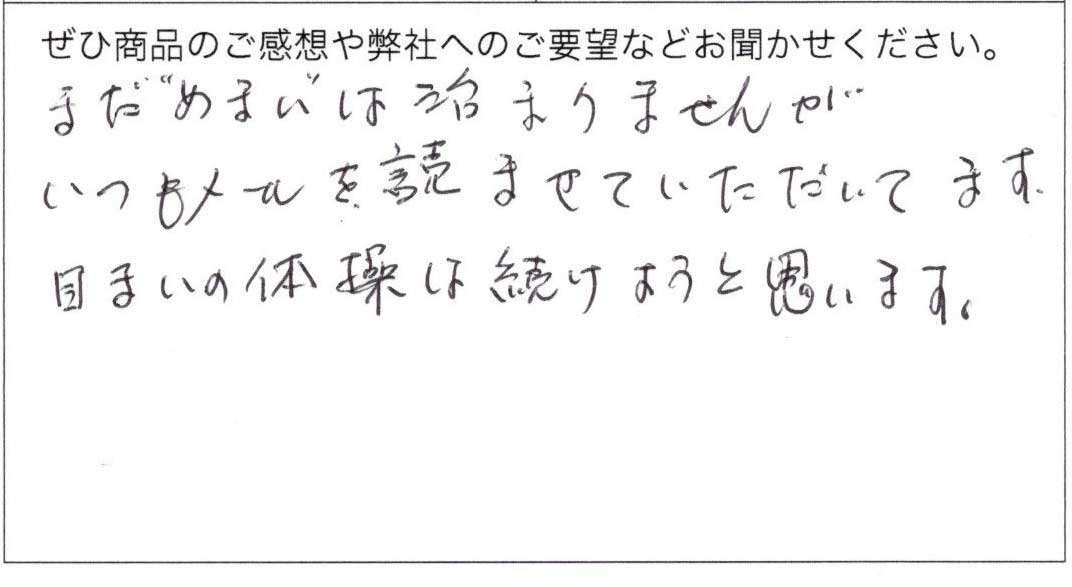 ぜひ商品のご感想や弊社へのご要望などお聞かせください。
まだ"めまい"は治まりませんが
いつもメールを読ませていただいてます.
目まいの体操は続けようと思います。